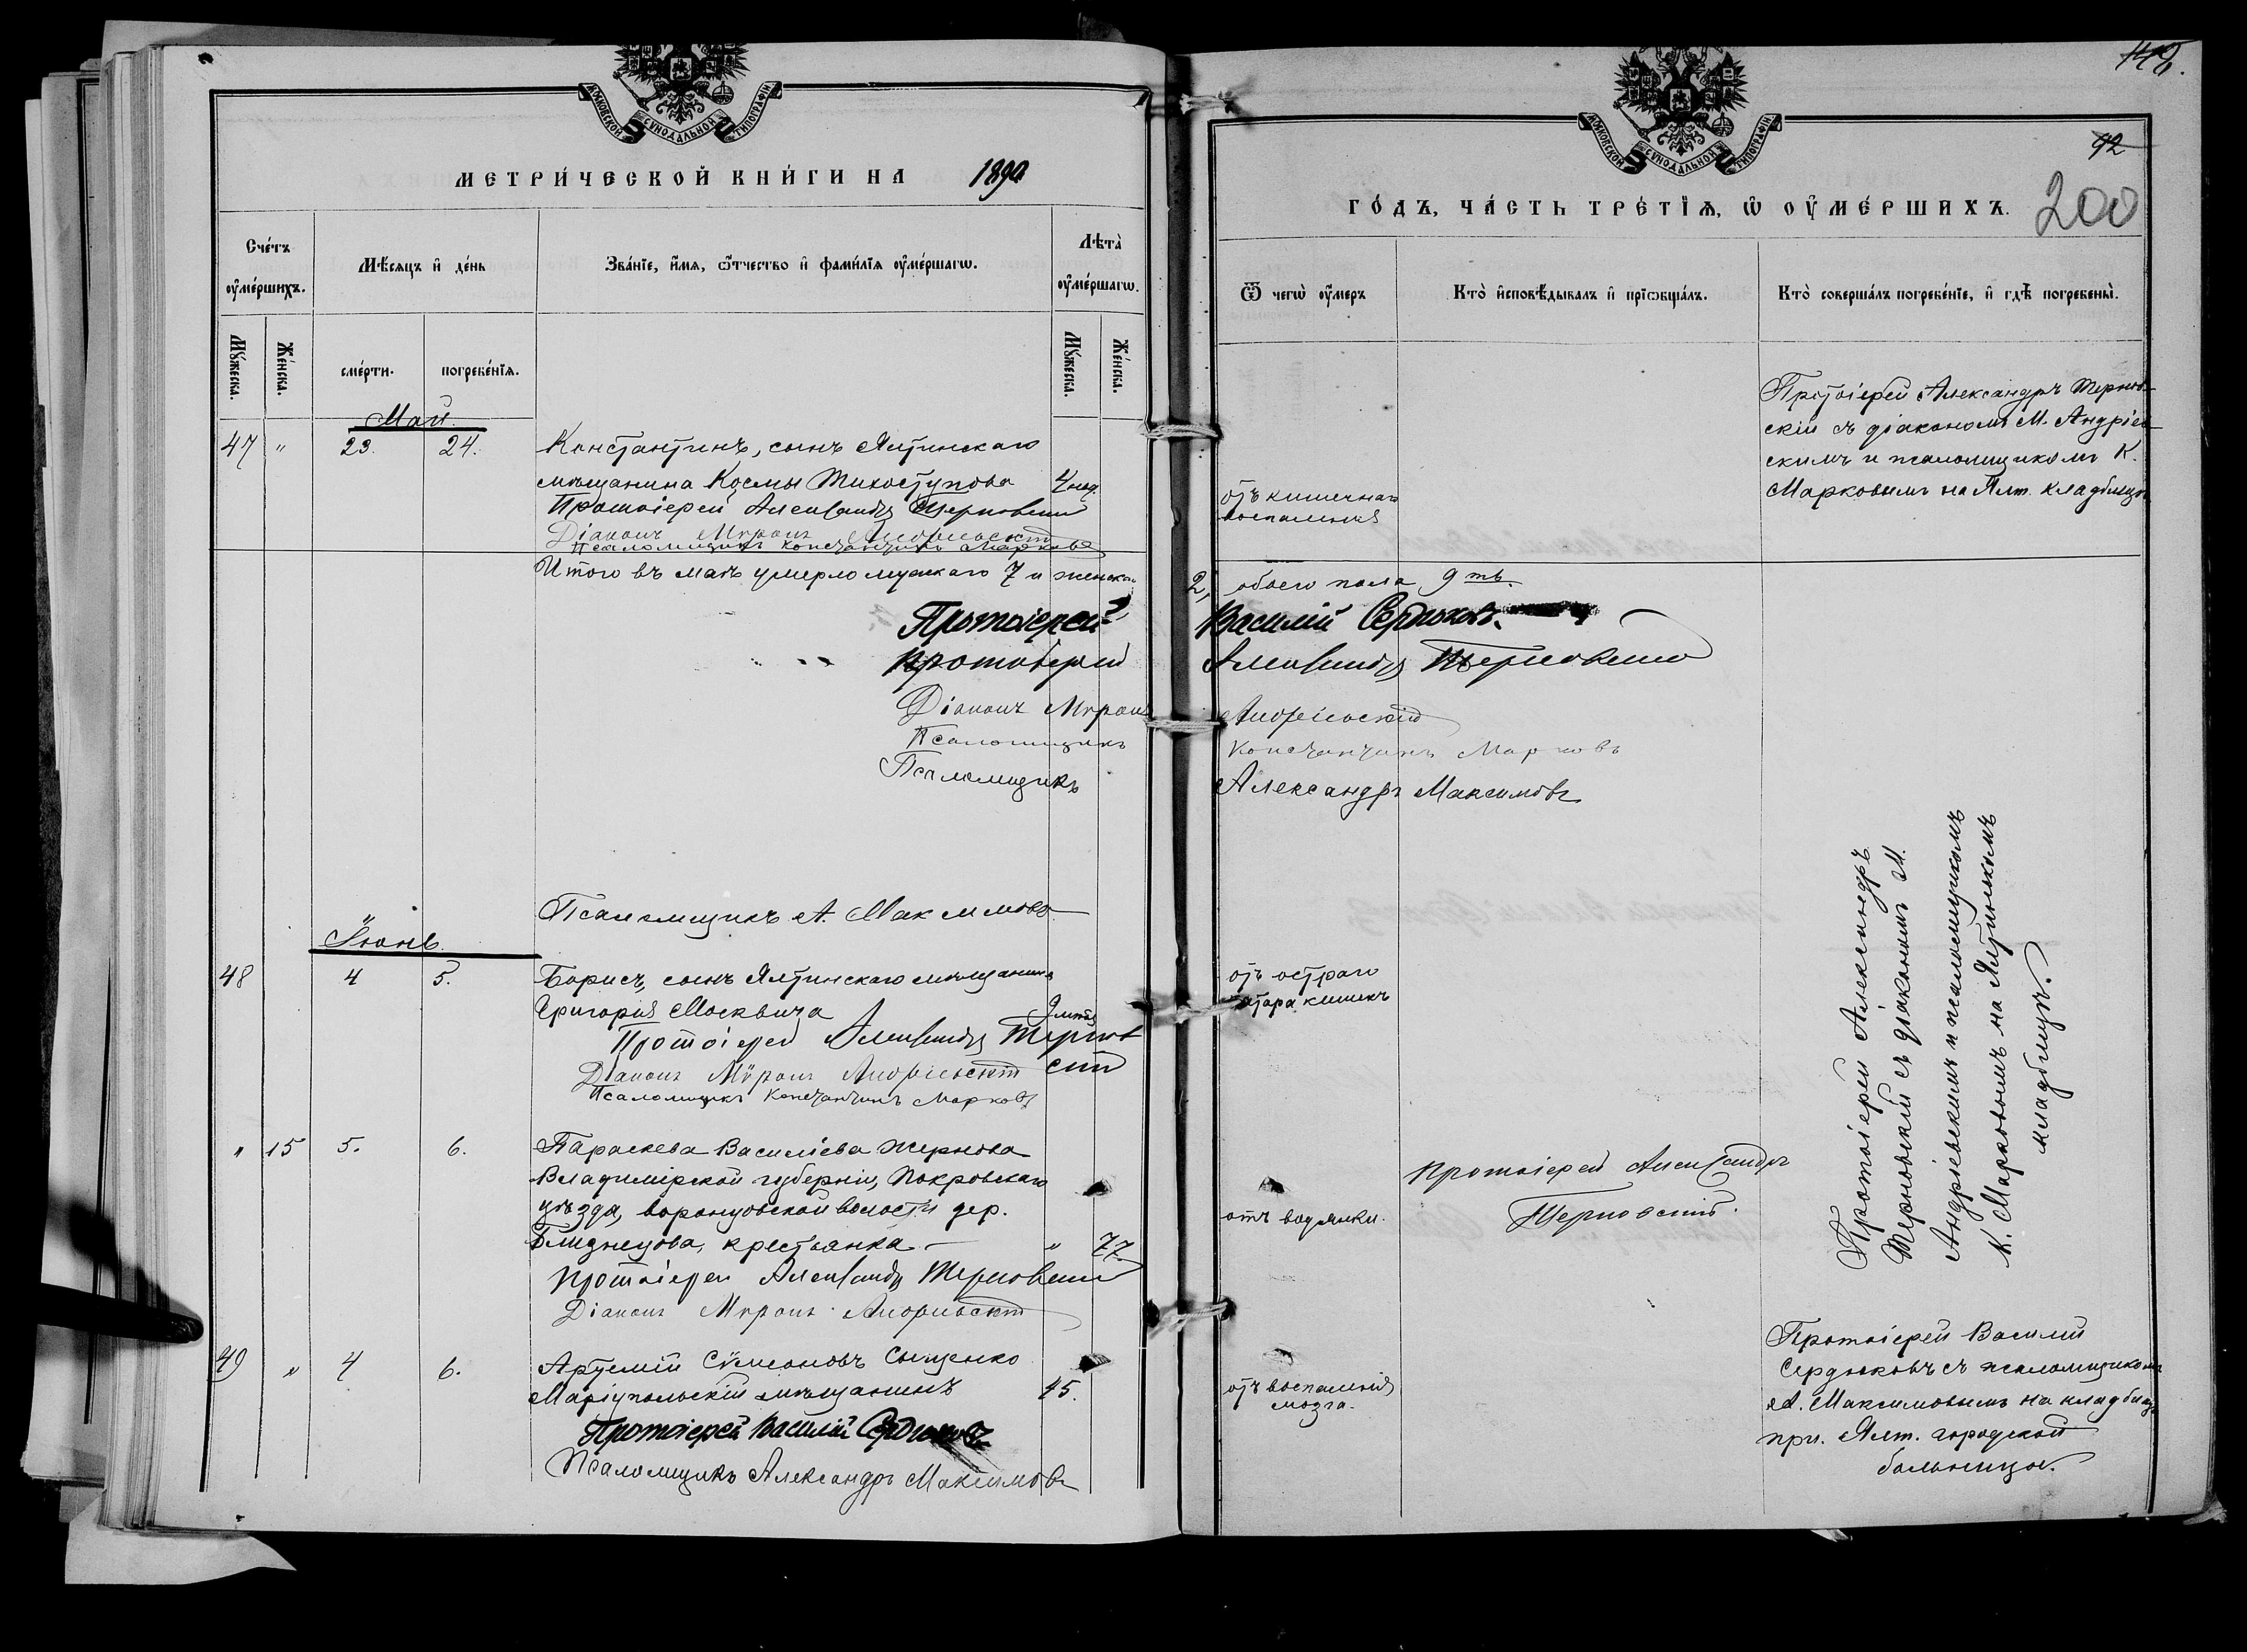 МОСКОВСКОЙ СѴНОДАЛЬНОЙ ТИПОГРАФІИ
МЕТРИ́ЧЕСКОЙ КНИ́ГИ НА 1890
Сче́тъ ᲂу҆ме́ршихъ.
Мѣ́сяцъ и҆ де́нь
Зва́нїе, и҆́мя, ѻ҆́тчество и҆ фами́лїя ᲂу҆ме́ршагѡ.
Лѣ́та ᲂу҆ме́ршагѡ.
Мꙋ́жеска.
Же́нска.
сме́рти.
погребе́нїя.
Мꙋ́жеска.
Же́нска.
Май.
47 " 23. 24. Константинъ, сынъ Ялтинскаго
мѣщанина Козмы Тихоступова 4 нед.
Протоіерей Александръ Терновскій
Діаконъ Миронъ Андріевскій
Псаломщикъ Константинъ Марковъ
Итого въ маѣ умерло мужскаго 7 и женска
Протоіерей
Протоіерей
Діаконъ Миронъ
Псаломщикъ
Псаломщикъ
Псаломщикъ А. Максимовъ
Іюнь.
48 4 5. Борисъ, сынъ Ялтинскаго мѣщанина
Григорія Москвича
Протоіерей Александръ Тернов
скій
Діаконъ Миронъ Андріевскій
Псаломщикъ Константинъ Марковъ
" 15 5. 6. Параскева Василіева Жернова
Владимірской губерніи, Покровскаго
уѣзда, воронцовской волости дер.
Близнецова, крестьянка — " 77.
Протоіерей Александръ Терновскій
Діаконъ Миронъ Андріевскій
49 " 4 6. Артемій Сѵмеоновъ Сыценко
Маріупольскій мѣщанинъ 45.
Протоіерей Василій Сердюковъ
Псаломщикъ Александръ Максимовъ
142.
92
МОСКОВСКОЙ СѴНОДАЛЬНОЙ ТИПОГРАФІИ
ГО́ДЪ, ЧА́СТЬ ТРЕ́ТЇѦ, Ѡ҆ ОУ҆МЕ́РШИХЪ. 200
Ѿ чегѡ̀ ᲂу҆́меръ
Кто̀ и҆сповѣ́дывалъ и҆ прїѡбща́лъ.
Кто̀ соверша́лъ погребе́нїе, и҆ гдѣ̀ погребены̀.
Протоіерей Александръ Тернов-
скій съ діакономъ М. Андріев-
скимъ и псаломщикомъ К.
Марковымъ на Ялт. кладбищѣ
отъ кишечнаго
воспаленія
2, обоего пола 9 ть.
Василій Сердюковъ.
Александръ Терновскій
Андріевскій
Константинъ Марковъ
Александръ Максимовъ
отъ остраго
катара кишекъ
Протоіерей Александръ
Терновскій съ діакономъ М.
Андріевскимъ и псаломщикомъ
К. Марковымъ на Ялтинскомъ
кладбищѣ.
отъ водянки.
Протоіерей Александръ
Терновскій.
отъ воспаленія
мозга.
Протоіерей Василій
Сердюковъ съ псаломщикомъ
А. Максимовымъ на кладбищѣ
при. Ялт. городской
больницѣ.